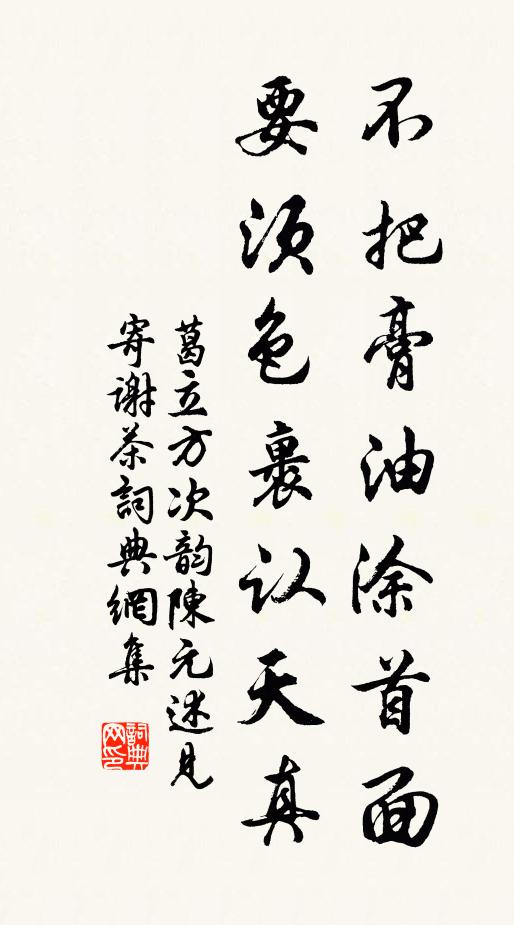 不把膏油涂首面
要须色裹认天真
葛立方次韵陳元述見
寄谢茶詞典網集
詞典网印